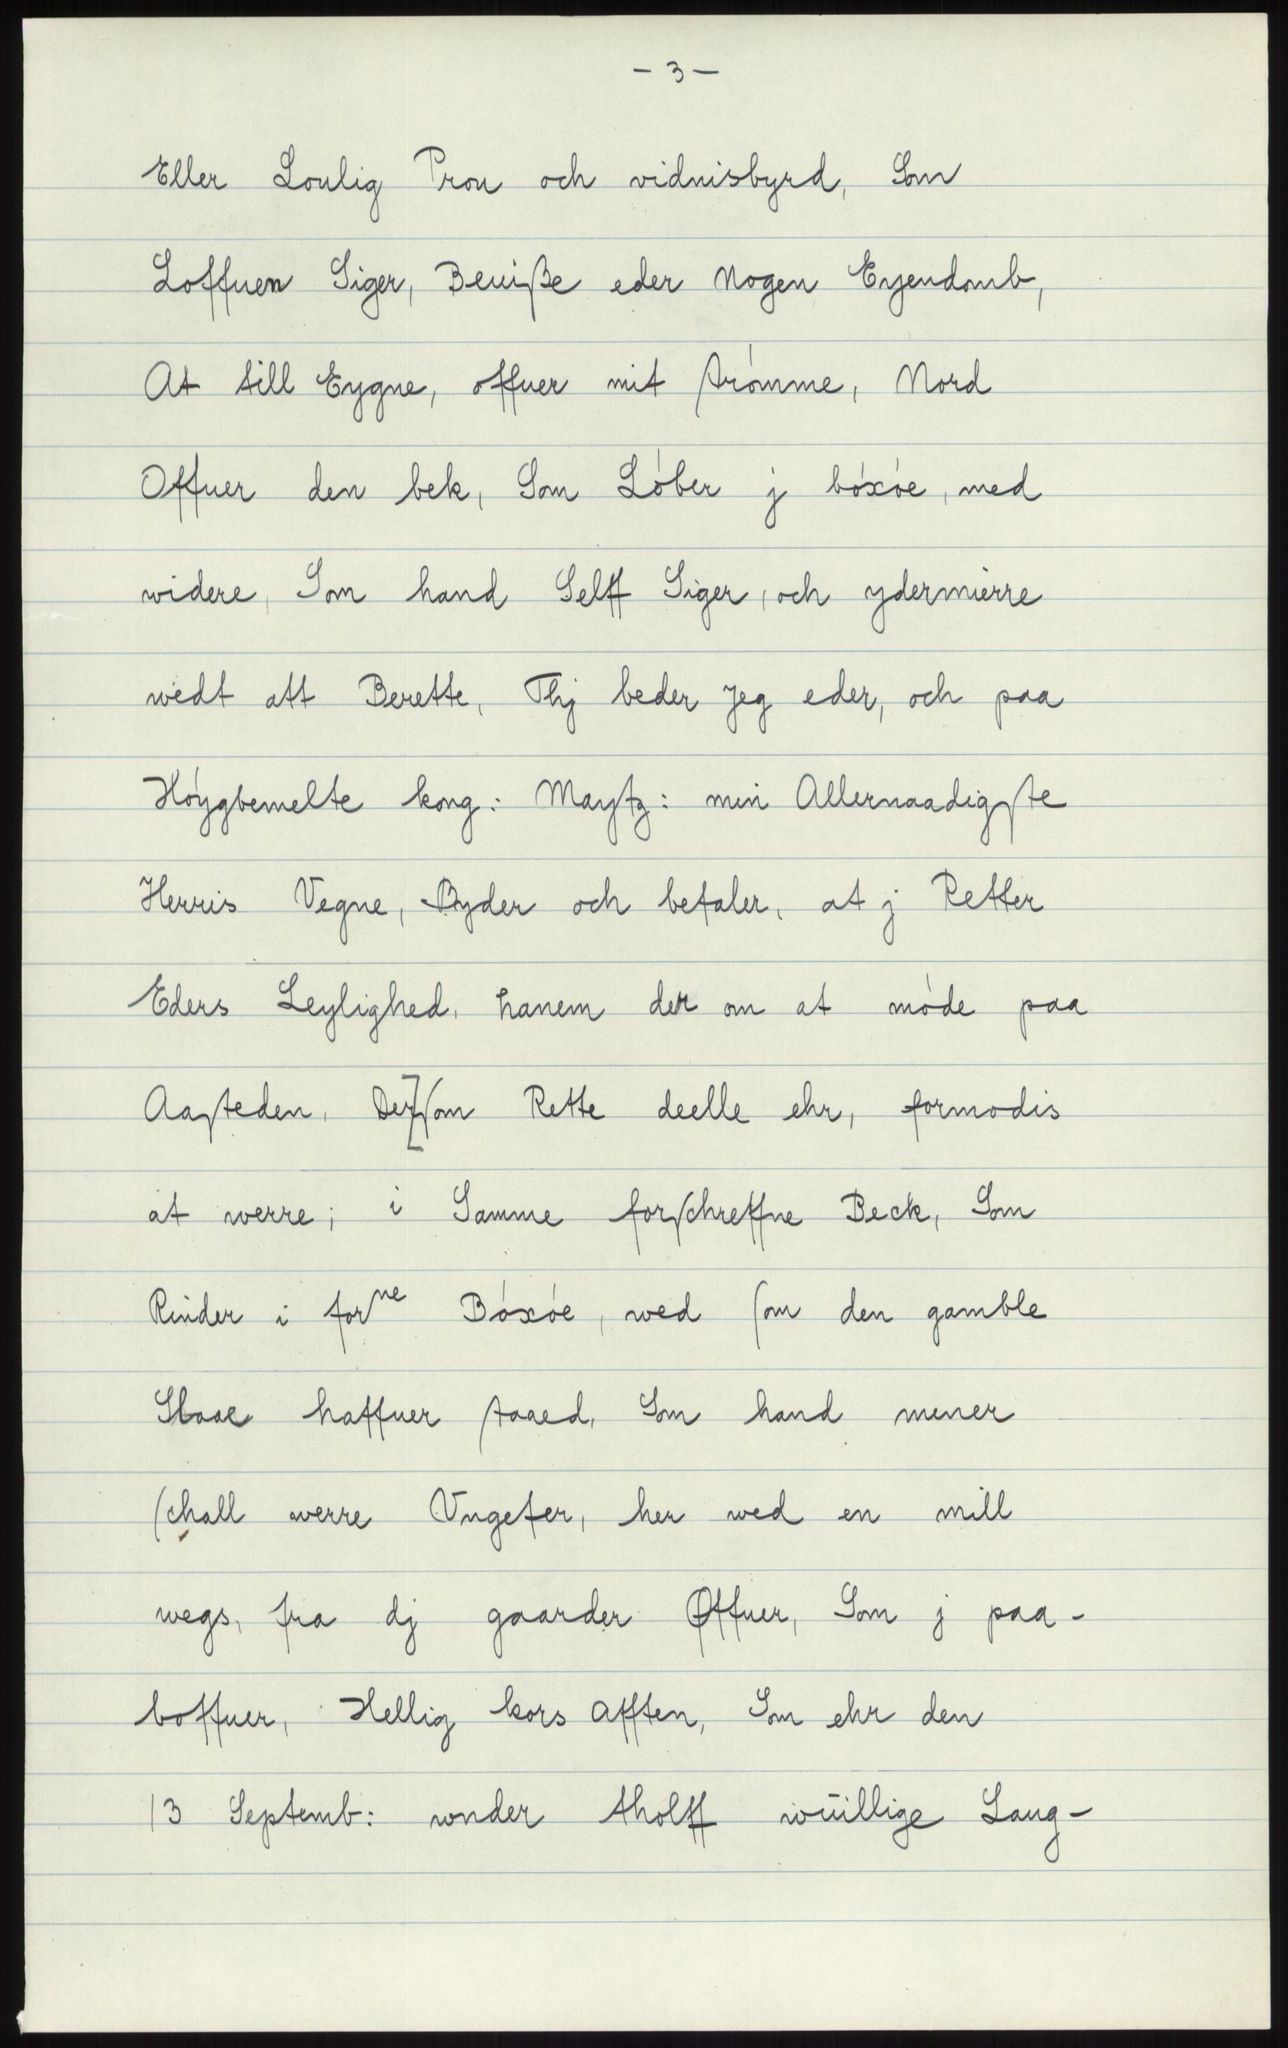 - 3 -
Eller Loulig Prou och vidnisbyrd, Som
Loffuen Siger, Beuiße eder Nogen Eyendomb,
At till Eygne, offuer mit strómme, Nord
Offuer den bek, Som Lóber j bóxóe, med
widere, Som hand Self Siger, och ydermierre
wedt att Berette, Thj beder Jeg eder, och paa
Hóygbemelte kong: Maytz: min Allernaadigste
Herris Vegne, Byder och befaler, at j Retter
Eders Leylighed, hanem der om at móde paa
Aasteden, Der som Rette deelle ehr, formodis
at werre; i Samme forschreffne Beck, Som
Rinder i for ne Bóxóe, wed som den gamble
Slaae haffuer staaed, Som hand mener
schall werre Vngefer, her wed en mill
wegs, fra dj gaarder Øffuer, Som j paa-
boffuer, Hellig kors Afften, Som ehr den
13 Septemb: wnder tholff wuillige Laug-